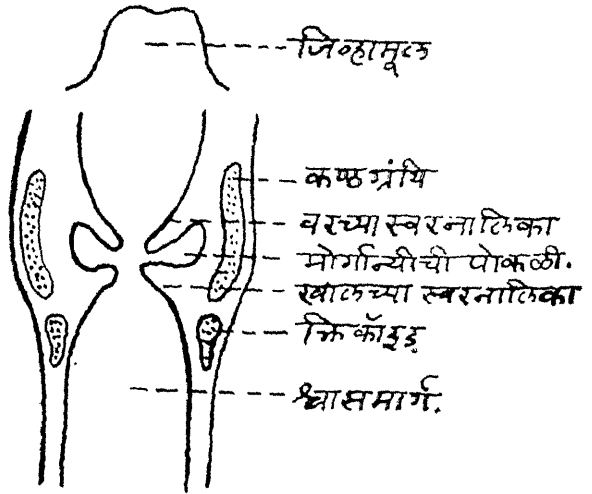 जिव्हामूल
कण्ठग्रंथि
वरच्या स्वरनालिका
मोर्गान्यीची पोकळी.
खालच्या स्वरनालिका
क्रिकॉइड्
श्वासमार्ग.